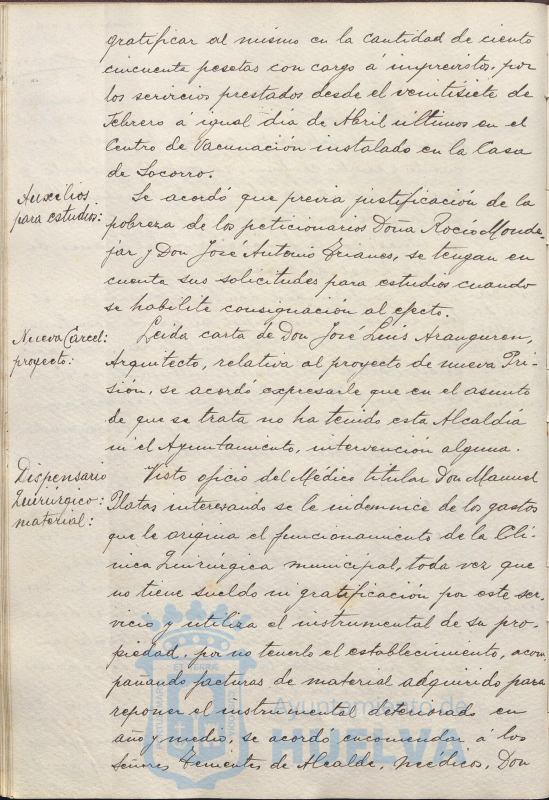 gratificar al mismo en la cantidad de ciento
cincuenta pesetas con cargo á imprevistos, por
los servicios prestados desde el veintisiete de
Febrero á igual dia de Abril últimos en el
Centro de Vacunación instalado en la Casa
de Socorro.
Auxilios
para estudios:
Se acordó que previa justificación de la
pobreza de los peticionarios Doña Rocío Monde-
jar y Don José Antonio Trianes, se tengan en
cuenta sus solicitudes para estudios cuando
se habilite consignación al efecto.
Nueva Carcel:
proyecto:
Leida carta de Don José Luis Aranguren,
Arquitecto, relativa al proyecto de nueva Pri-
sión, se acordó expresarle que en el asunto
de que se trata no ha tenido esta Alcaldía
ni el Ayuntamiento, intervención alguna.
Dispensario
Quirúrgico:
material:
Visto oficio del Médico titular Don Manuel
Platas interesando se le indemnice de los gastos
que le origina el funcionamiento de la Clí-
nica Quirúrgica municipal, toda vez que
no tiene sueldo ni gratificación por este ser-
vicio y utiliza el instrumental de su pro-
piedad, por no tenerlo el establecimiento, acom
pañando facturas de material adquirido para
reponer el instrumental deteriorado en
año y medio, se acordó encomendar á los
señores Tenientes de Alcalde, médicos, Don
Ayuntamiento de
HUELVA